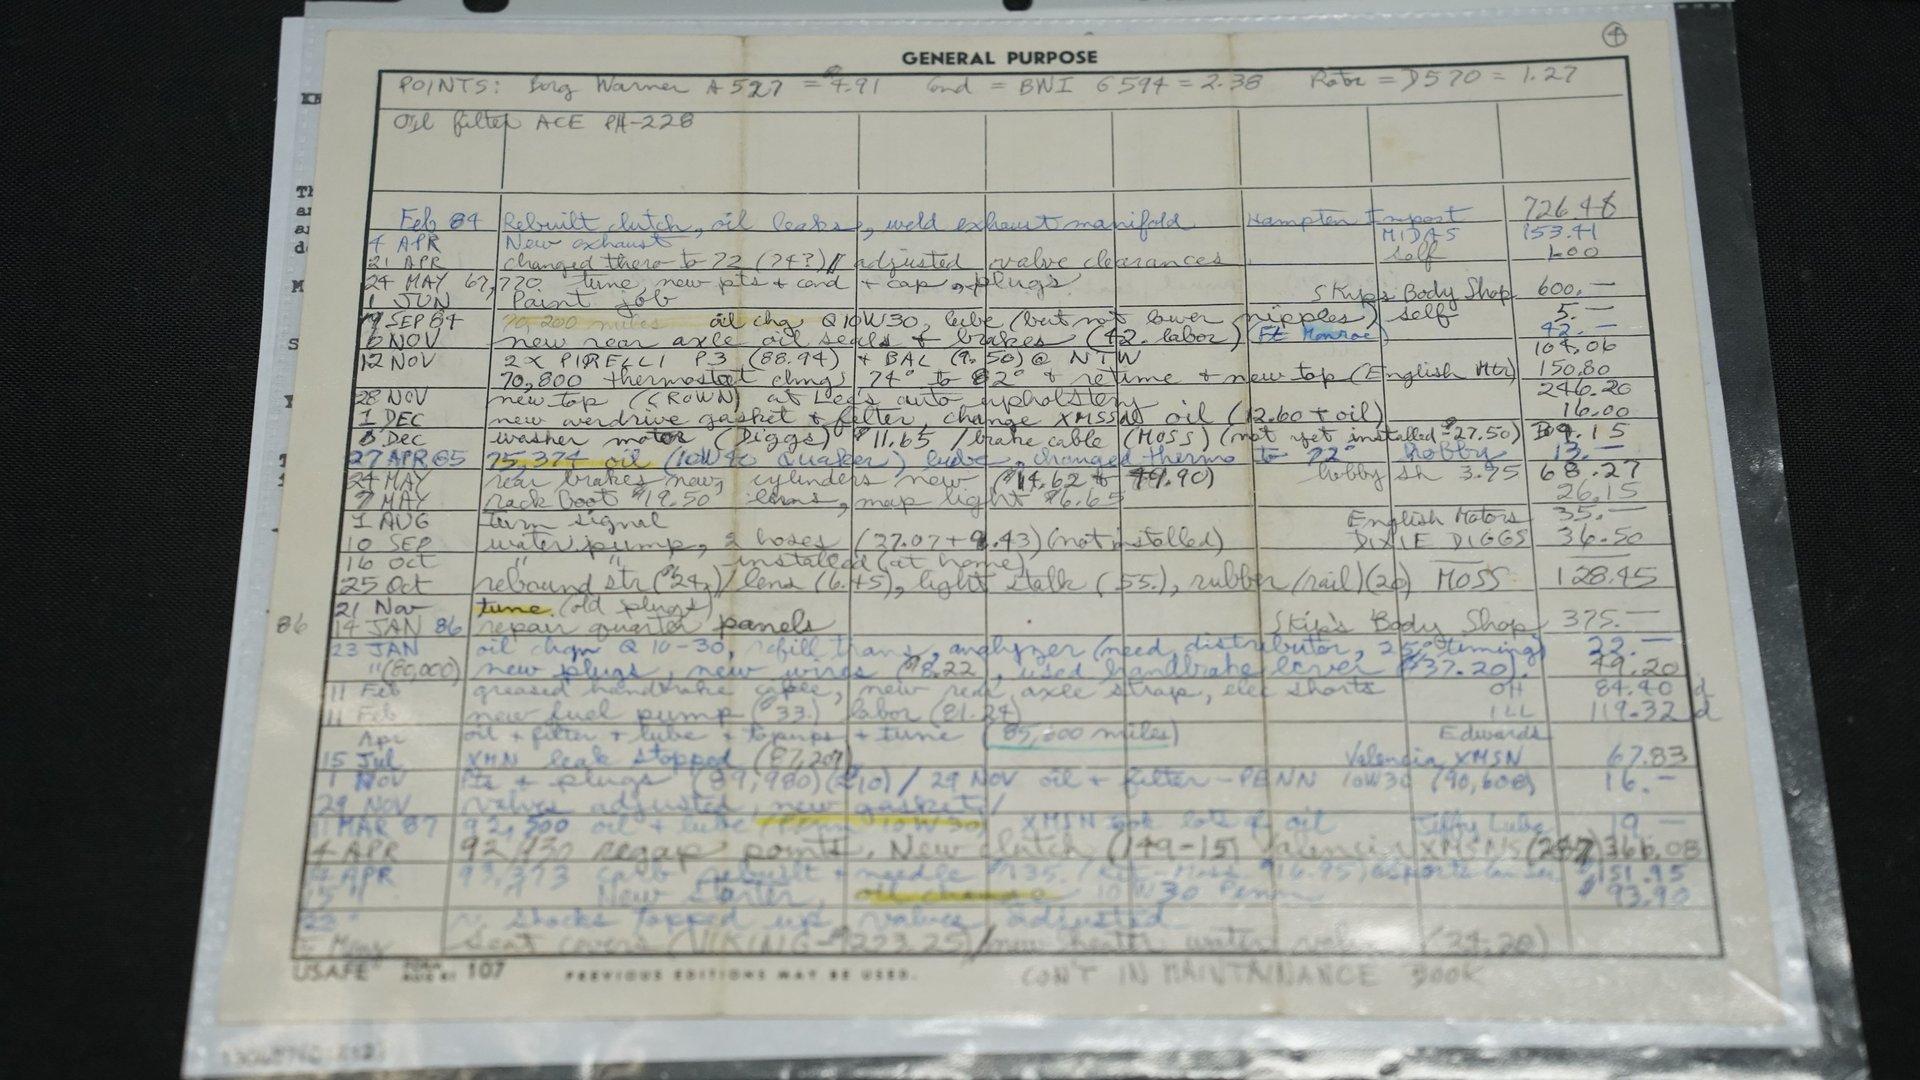 ④
GENERAL PURPOSE
POINTS: Borg Warner A527 = $4.91 Cond = BWI G594 = 2.38 Rotor = D570 = 1.27
Oil filter ACE PH-228
Feb 84 Rebuilt clutch, oil leaks, weld exhaust manifold Hampton Import 726.48
4 APR New exhaust MIDAS 153.41
21 APR changed thermo to 72 (74?) // adjusted valve clearances Self
24 MAY 67,770 tune, new pts + cond + cap, plugs
1 JUN Paint job Skip's Body Shop 600.—
SEP 84 70,200 miles oil chg Q10W30, lube (but not lower nipples) self 5.—
6 NOV new rear axle oil seals + brakes (42. labor) (Ft Monroe) 42.—
12 NOV 2 x PIRELLI P3 (88.94) + BAL (9.50) @ NTW 104.06
70,800 thermostat chng 74° to 82° + retime + new top (English Mtr) 150.80
28 NOV new top (CROWN) at Lee's auto upholstery 246.20
1 DEC new overdrive gasket + filter, change XMSSN oil (12.60 + oil) 16.00
8 Dec washer motor (Diggs) $11.65 / brake cable (MOSS) (not yet installed - 27.50)
27 APR 85 75,374 oil (10W40 Quaker) lube, changed thermo to 72° Hobby 13.—
24 MAY rear brakes new, cylinders new ($14.62 + 49.90) hobby sh 3.75 68.27
7 MAY rack Boot $19.50 lens, map light $6.65 26.15
1 AUG turn signal English Motors 35.—
10 SEP water pump, 2 hoses (27.07 + 9.43) (not installed) DIXIE DIGGS 36.50
16 Oct " " - installed (at home)
25 Oct rebound str ($24.) / lens (6.45), light stalk (55.), rubber (rail) (20) MOSS 128.45
21 Nov tune (old plugs)
86 14 JAN 86 repair quarter panels Skip's Body Shop 375.—
23 JAN oil chgn Q 10-30, refill trans, analyzer (need distributor, 25° timing) 22.—
" (80,000) new plugs, new wires, used handbrake lever ($37.20) 49.20
11 Feb greased handbrake cable, new rear axle straps, elec shorts 84.40
11 Feb new fuel pump ($33.) labor (81.24) 119.32
Apr oil + filter + lube + topups + tune (85,600 miles) Edwards
15 Jul XMN leak stopped (87,207) Valencia XMSN 67.83
1 NOV Pts + plugs (89,980) / 29 NOV oil + filter - PENN 10W30 (90,608) 16.—
29 NOV valves adjusted, new gaskets/
MAR 87 92,500 oil + lube (Penn 10W30) XMSN took lots of oil Jiffy Lube 19 —
4 APR 92,930 regap points. New clutch (149-15) Valencia XMSNS 366.08
14 APR 93,373 carb rebuilt + needle $135. (Kit-Moss $16.95) $151.95
15 " " New starter, oil change 10W30 Penn $93.90
22 " " shocks topped up, valves adjusted
May Seat covers (VIKING - $223.25) / new heater water valve (24.20)
USAFE FORM 107 PREVIOUS EDITIONS MAY BE USED. CON'T IN MAINTAINANCE BOOK